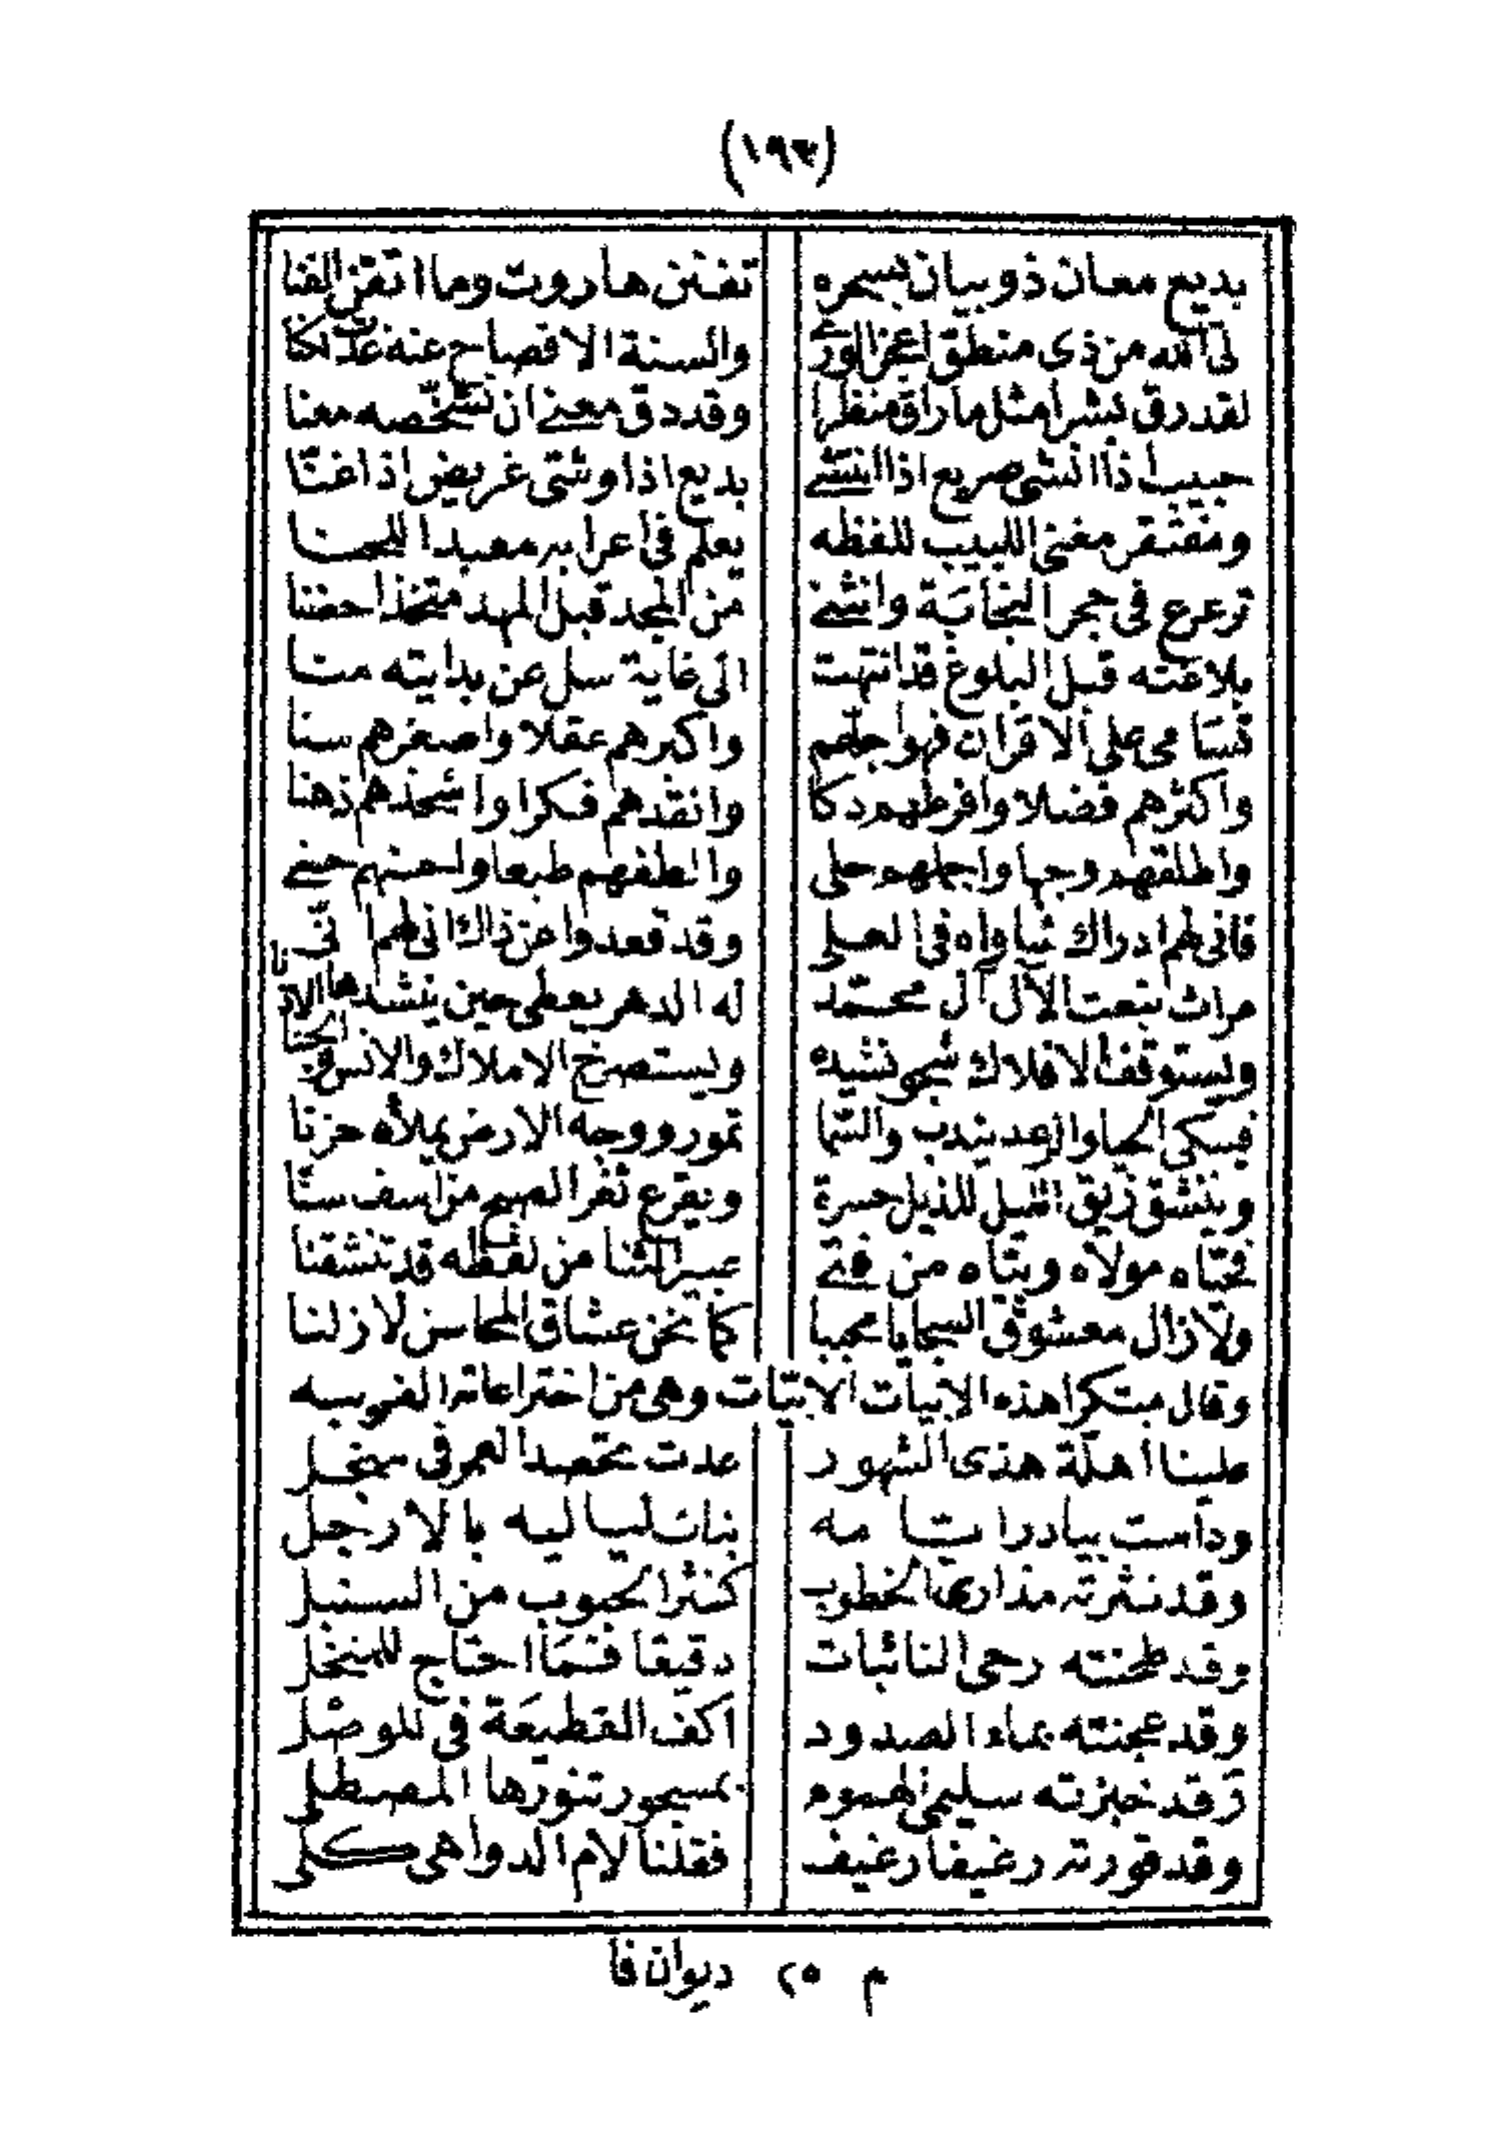 (١٩٣)
بديع معان ذو بيان بسحره تفنن هاروت وما اتقن الفنا
لى الله من ذى منطق اعجز الورى والسنة الافصاح عنه غدت لكنا
لقد رق نشرا مثل ما راق منظرا وقد دق معنى ان تشخّصه معنا
حبيب اذا انشى صريع اذا انتشى بديع اذا وشّى غريض اذا غنّا
ومفتقر مغنى اللبيب للفظه يعلم فى اعرابه معبدا اللحنا
ترعرع فى حجر النجابة وانثنى من المجد قبل المهد متخذا حضنا
بلاغته قبل البلوغ قد انتهت الى غاية سل عن بدايته متنا
فتسامى على الاقران فهو اجلّهم واكبرهم عقلا واصغرهم سنا
واكثرهم فضلا وافرطهم ذكا وانقدهم فكرا واشحذهم ذهنا
واطلقهم وجها واجملهم حلى والطفهم طبعا واحسنهم حسنى
فانى لهم ادراك شاواه فى العلى وقد قعدوا عن ذاك انى لهم انّى
مراث بنعت الآل آل محمّد له الدهر يعطى حين ينشدها الاذنا
ويستوقف الافلاك شجو نشيده ويستصرخ الاملاك والانس والجنا
فيبكى الحيا والرعد يندب والسّما تمور ووجه الارض يملأه حزنا
وينشق زيق الليل للذيل حسرة ويقرع ثغر الصبح من اسف سنّا
فحيّاه مولاه وبيّاه من فتى عبير الثنا من لفظه قد تنشقنا
ولا زال معشوق السجايا محببا كما نحن عشاق المحاسن لا زلنا
وقال مبتكرا هذه الابيات الابيّات وهى من اختراعاته الغريبه
علينا أهلّة هذى الشهور عدت تحصد العمر فى منجل
وداست بيادر ايامه بنات لياليه بالارجل
وقد نثرته مذارى الخطوب كنثر الحبوب من السنبل
وقد طحنته رحى النائبات دقيقا فما احتاج للمنخل
وقد عجنته بماء الصدود اكف القطيعة فى للوصّل
وقد خبزته سليمى الهموم بمسجور تنورها المصطلى
وقد قورته رغيفا رغيف فقلنا لام الدواهى كلى
م ٢٥ ديوان فا